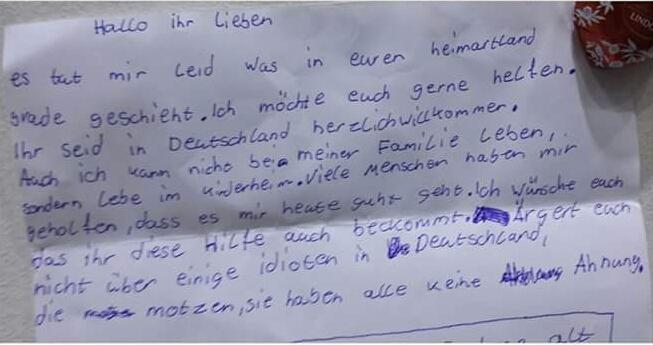 Hallo ihr Lieben
es tut mir leid was in euren heimartland
grade geschieht. Ich möchte euch gerne helfen.
Ihr seid in Deutschland herzlichwillkommen.
Auch ich kann nicht bei meiner Familie leben,
sondern lebe im Kinderheim. Viele Menschen haben mir
geholfen, dass es mir heute guht geht. Ich wünsche euch
das ihr diese Hilfe auch beckommt. Ärgert euch
nicht über einige idioten in Deutschland,
die motzen, sie haben alle keine Ahnung.
alt
LINDO